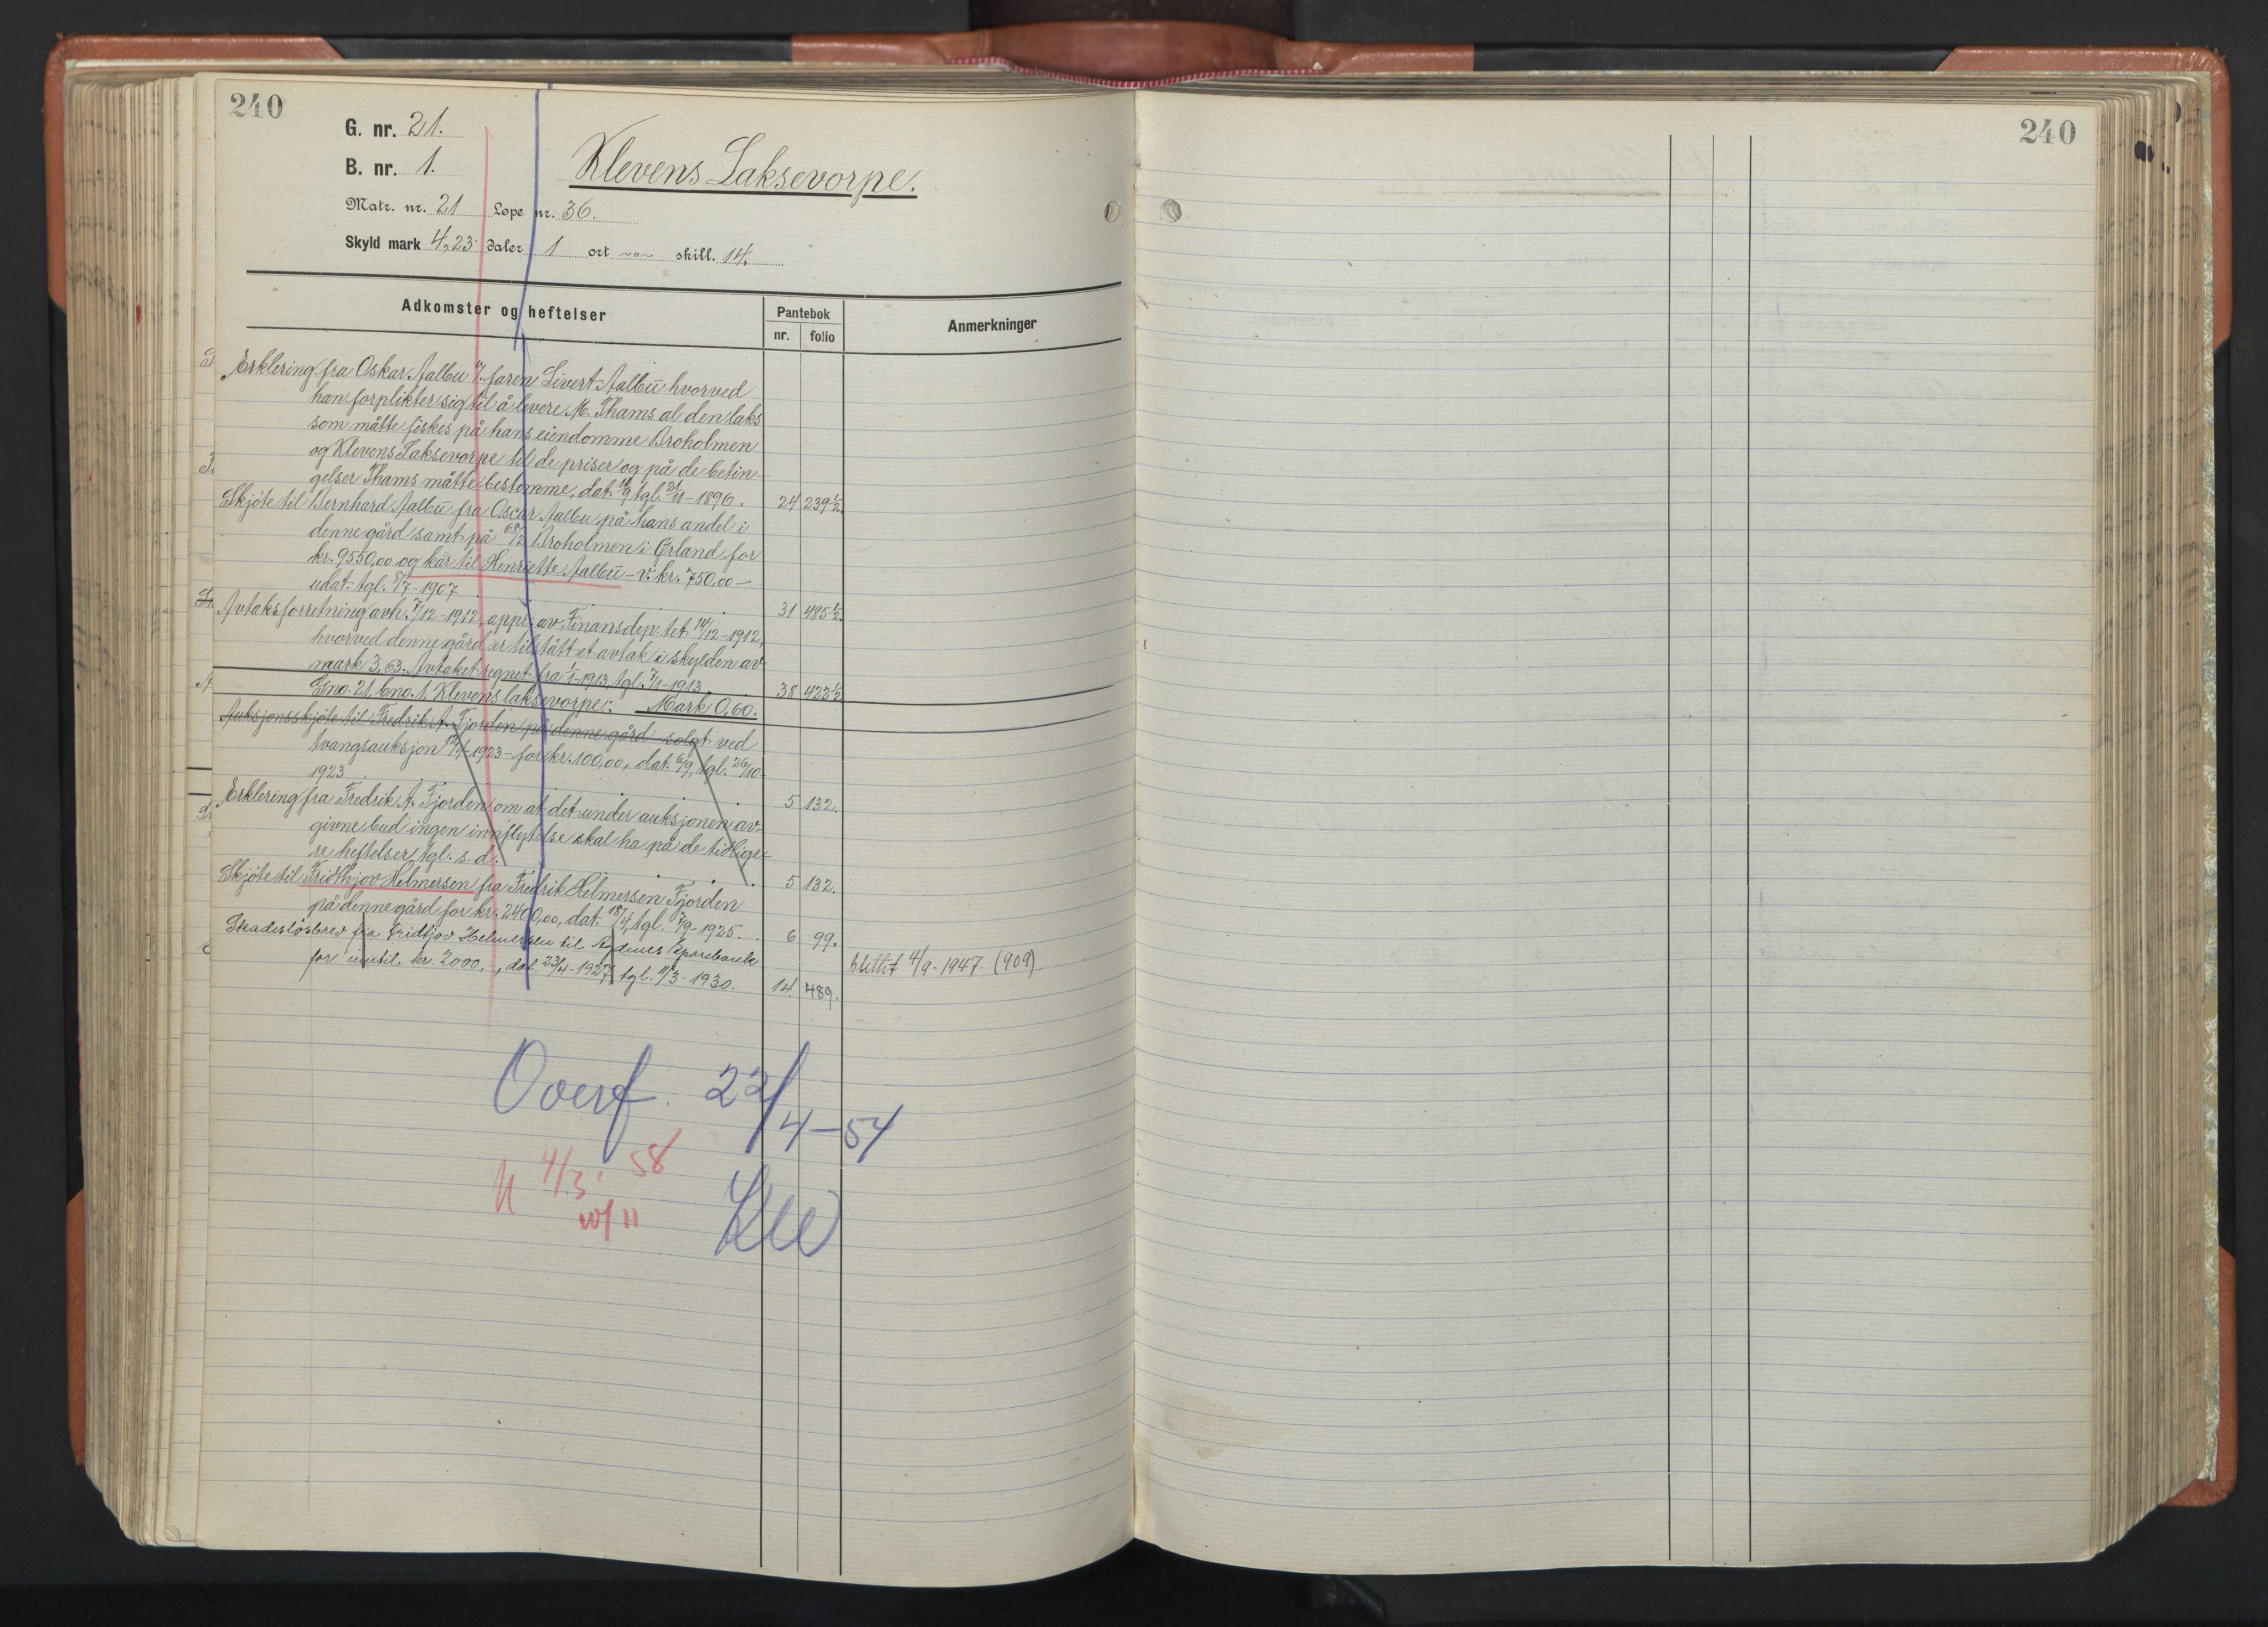 240
G. nr. 21.
B. nr. 1.
Klevens Laksevorpe.
Matr. nr. 21 Løpe nr. 36.
Skyld mark 4,23 daler 1 ort -"- skill. 14.
Adkomster og heftelser
Pantebok
nr. folio
Anmerkninger
Erklering fra Oskar Aalbu v. faren Sivert Aalbu hvorved
han forplikter sig til å levere M. Thams al den laks
som måtte fiskes på hans eiendomme Broholmen
og Klevens Laksevorpe til de priser og på de betin-
gelser Thams måtte bestemme, dat. tgl. 21/11-1896. 24 239 1/2.
Skjöte til Bernhard Aalbu fra Oscar Aalbu på hans andel i
denne gård samt på 68/2 Broholmen i Ørland for
kr. 9550,00 og kår til Henriette Aalbu - v. kr. 750,00 -
udat. tgl. 8/7-1907 31 485 1/2.
Avtaksforretning avh. 7/12-1912, appr. av Finansdep:tet 14/12-1912,
hvorved denne gård er tilstått et avtak i skylden av
mark 3,63. Avtaket regnet fra 1/1-1913, tgl. 7/1-1913 38 422 1/2
Gno. 21, bno. 1 Klevens laksevorpe: Mark 0,60.
Auksjonsskjöte til Fredrik A. Fjorden på denne gård solgt ved
tvangsauksjon 1923 - for kr. 100,00, dat. 6/9, tgl. 26/10
1923 5 132.
Erklering fra Fredrik A. Fjorden om at det under auksjonen av-
givne bud ingen innflytelse skal ha på de tidlige-
re heftelser, tgl. s. d. 5 132.
Skjöte til Fridthjov Helmersen fra Fredrik Helmersen Fjorden
på denne gård for kr. 2400,00, dat. 18/4, tgl. 7/9-1925. 6 99.
Skadeslösbrev fra Fridtjov Helmersen til Agdenes Sparebank
for inntil kr. 2000,-, dat. 23/4-1927, tgl. 11/3-1930. 14. 489.
Slettet 4/9-1947 (909)
Overf. 22/4-54
4/3' 58
240